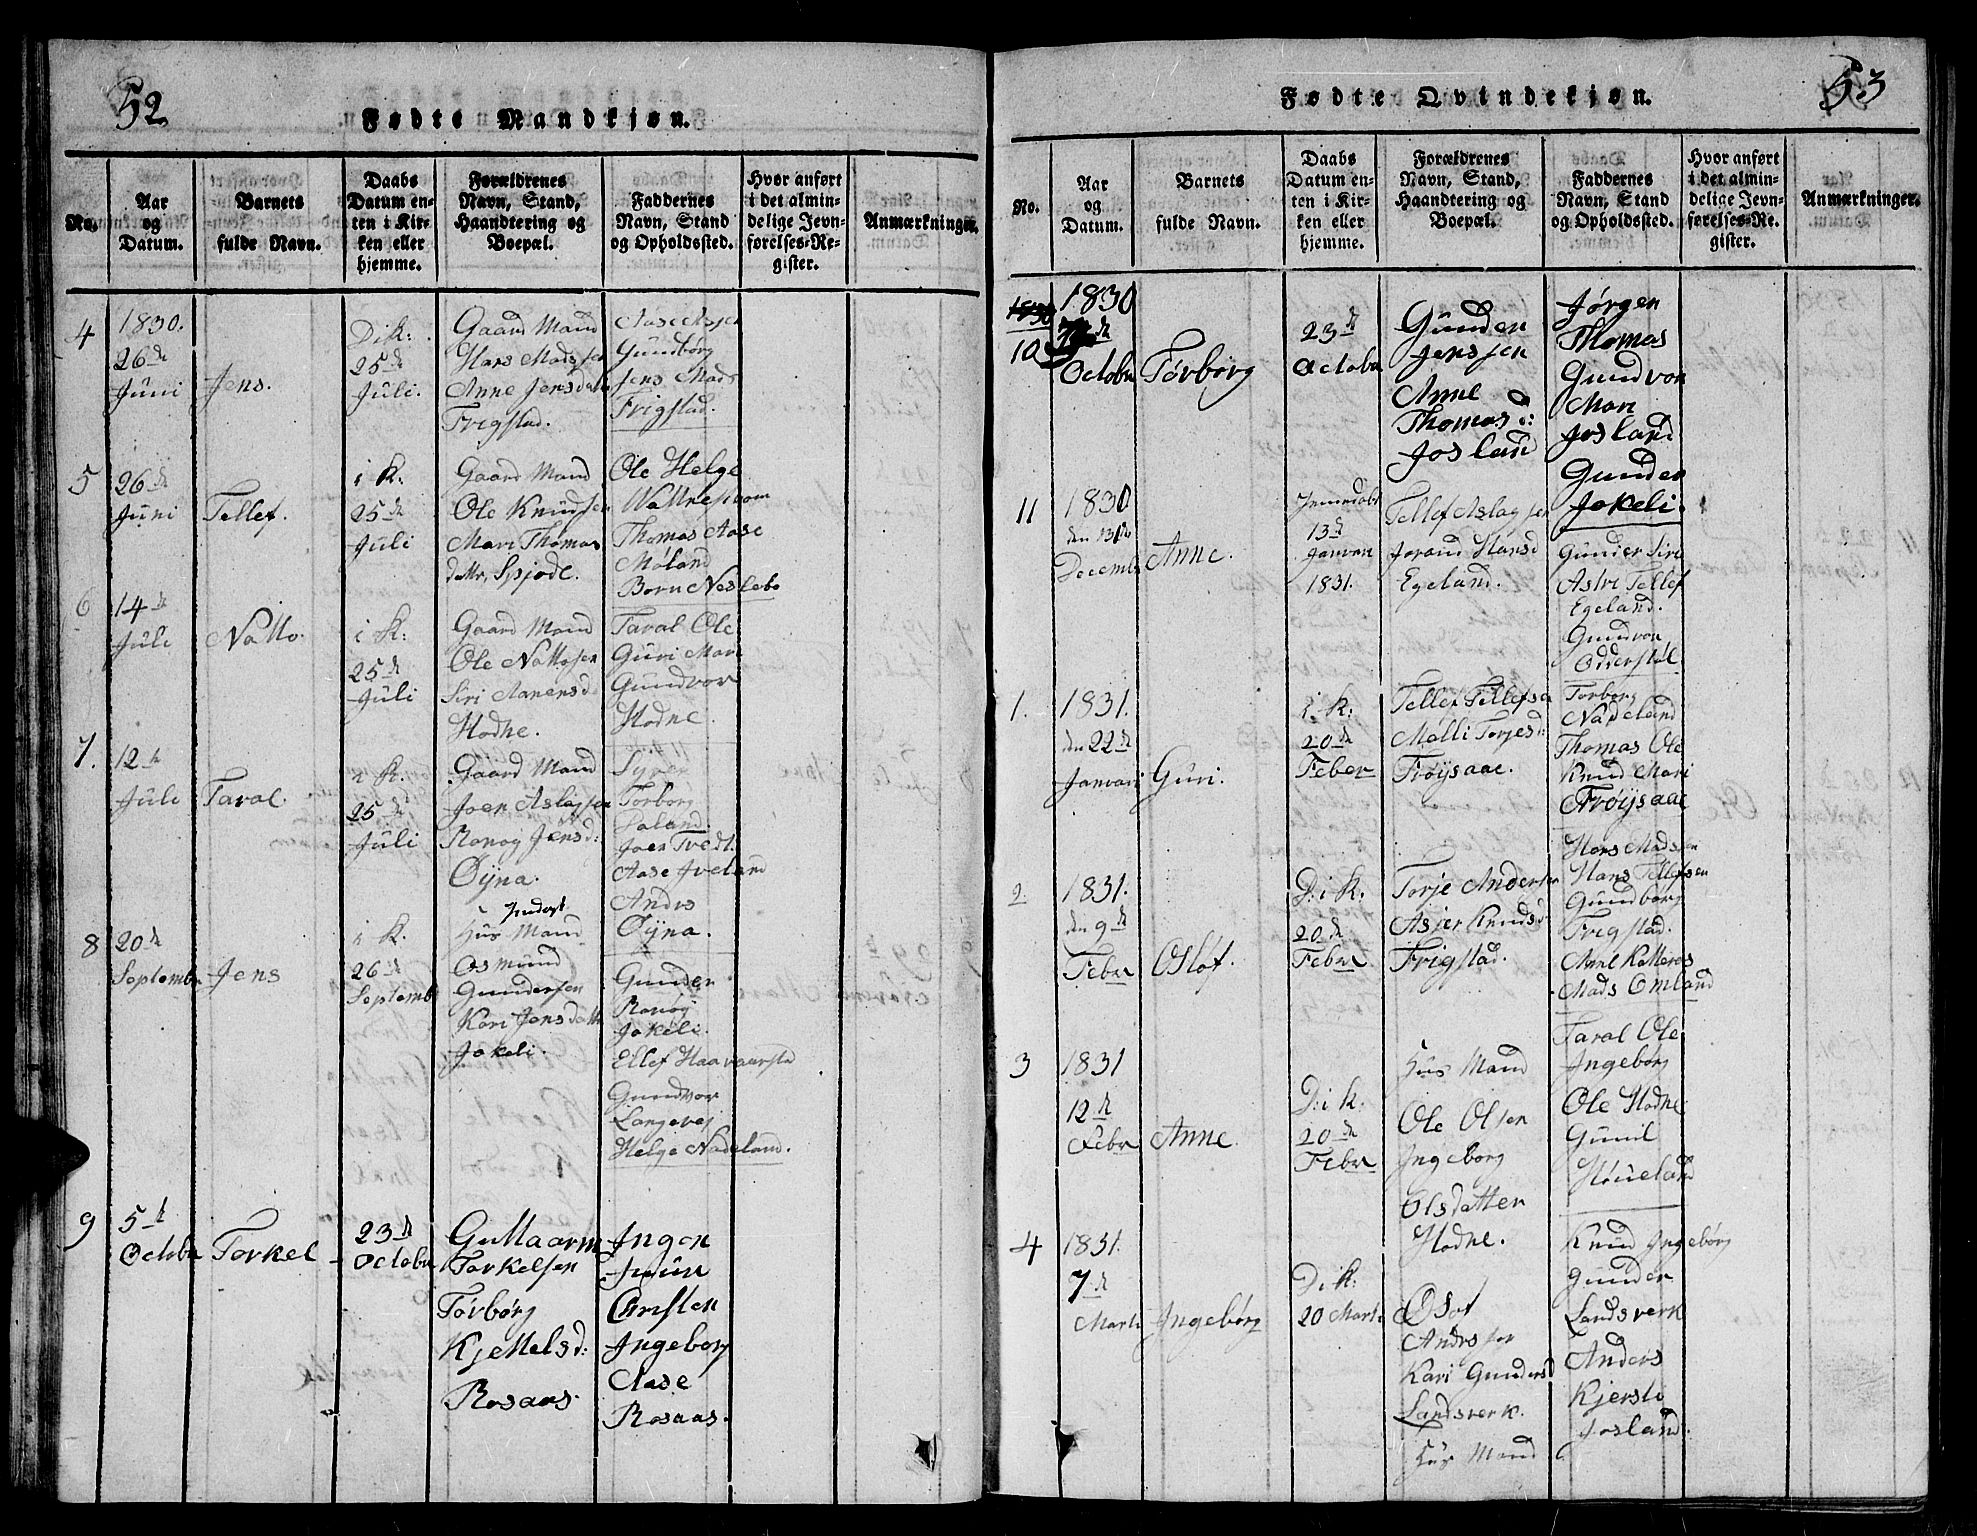 52
Fødte Mandkjøn.
No.
Aar
og
Datum.
Barnets
fulde Navn.
Daabs
Datum en-
ten i Kir-
ken eller
hjemme.
Forældrenes
Navn, Stand,
Haandtering og
Boepæl.
Faddernes
Navn, Stand
og Opholdssted.
Hvor anført
i det almin-
delige Jevn-
førelses-Re-
gister.
Anmærkninger.
4
1830.
26de
Juni
Jens.
D i K.
25de
Juli.
Gaard Mand
Hans Madssen
Anne Jensdatt
Frigstad.
Aase Asjer
Gundborg
Jens Mads
Frigstad.
5
26de
Juni
Tellef.
i K.
25de
Juli
Gaard Mand
Ole Knudsen
Mari Thomas
dattr, Spjode.
Ole Helge
Wattnestrøm
Thomas Aase
Møland
Boru Neslebo
6
14de
Juli
Natto.
i K:
25de
Juli
Gaard Mand
Ole Nattosen
Siri Aanensd
Hodne.
Taral Ole
Guri Mari
Gundvor
Hodne.
7.
12te
Juli
Taral.
i K.
25de
Juli
Gaard Mand
Joen Aslagsen
Ronog Jensd:
Øÿna.
Syver
Torborg
Joen Tvedt.
Aase Iveland
Andrs
Øÿna.
8
20de
Septembr
Jens
i K.
26de
Septembr
Huus Mand
Osmund
Gundersen
Kari Jensdatt
Jokeli.
Gunder
Ronog
Jokeli.
Ellef Haavaarsta
Gundvor
Langevej
Helge Nadeland.
9
5te
Octobr
Torkel
23de
Octobr
Guttaarm
Torkelsen
Tørbørg
Kjettelsd:
Rosaas.
Ingen
Christen
Ingeborg
Aase
Rosaas.
53
Fødte Qvindekjøn.
No.
Aar
og
Datum.
Barnets
fulde Navn.
Daabs
Datum en-
ten i Kir-
ken eller
hjemme.
Forældrenes
Navn, Stand,
Haandtering og
Boepæl.
Faddernes
Navn, Stand
og Opholdssted.
Hvor anført
i det almin-
delige Jevn-
førelses-Re-
gister.
Anmærkninger.
10
1830
Octobr
Tørbørg
23de
Octobr
Gunder
Jenssen
Anne
Thomas d:
Josland
Jørgen
Thomas
Gundvor
Mari
Josland
Gunder
Jokeli.
11
1830
den 13de
Decembr
Anne.
13de
Januari
1831.
Tellef Aslagsen
Joraand Hansd
Egeland.
Gunder Siri
Astri Tellef
Egeland.
Gundvor
Odderstøl
1.
1831.
den 22de
Januari
Guri.
i K.
20de
Feber
Tellef Tellefsen
Malli Torjesd
Frøÿsaae.
Torborg
Nadeland
Thomas Ole
Knud Mari
Frøÿsaae
2.
1831.
den 9de
Febr
Osløf.
D: i K.
20de
Febr
Torje Andersen
Asjer Knudsd
Frigstad.
Hans Madssen
Hans Tellefsen
Gundborg
Frigstad.
Anne Katteras
Mads Omland
3
1831
12te
Febr
Anne.
D: i K.
20de
Febr
Huus Mand
Ole Olsen
Ingeborg
Olsdatter
Hodne.
Taral Ole
Ingeborg
Ole Hodne
Gunil
Høueland
4
1831.
7de
Marti
Ingebørg
D i K:
20 Marti
Osof
Andrssor
Kari Gundersd
Landsverk.
Huus Mand
Knud Ingebørg
Gunder
Landsverk
Anders
Kjersti
Josland.